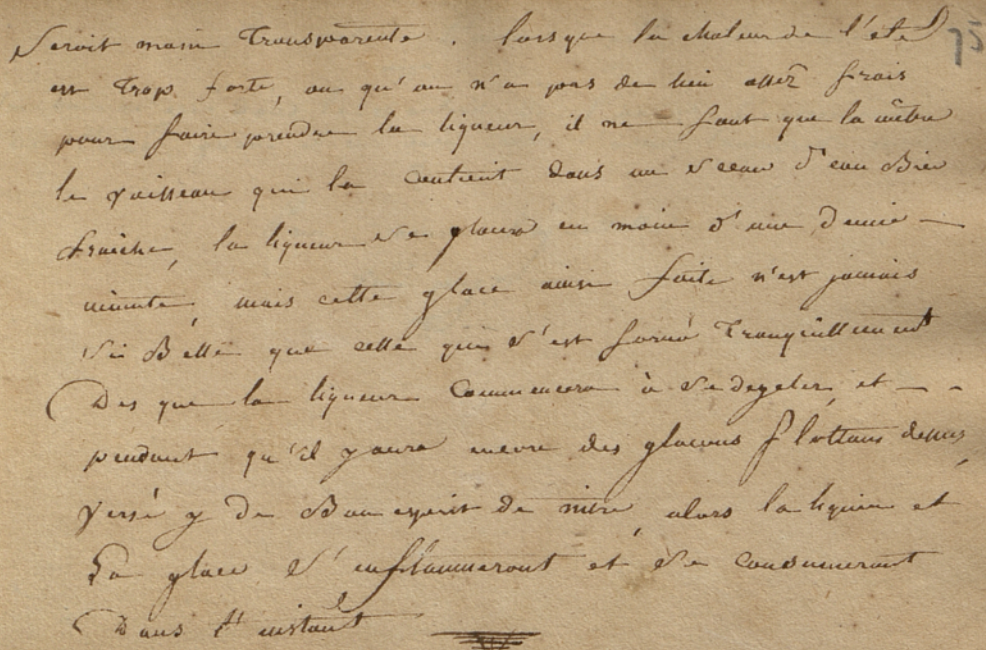 Seroit moin Transparente. lorsque la chaleur de l'été 75
est Trop forte, ou qu'on n'a pas de lieu assez frais
pour faire prendre la liqueur, il ne faut que la mètre
le vaisseau qui la contient dans un Seeau d'eau Bien
fraiche, la liqueur Se glacera en moin d'une demie —
minute, mais cette glace ainsi faite n'est jamais
Si Belle que celle qui S'est formé Tranquillement
Des que la liqueur Commencera à Se degeler, et — -
pendant qu'il y aura encore des glacons flottans dessus,
Versé y de Bon esprit de nitre, alors la liqueur et
La glace S'enflammeront et Se consumeront
Dans l'instant